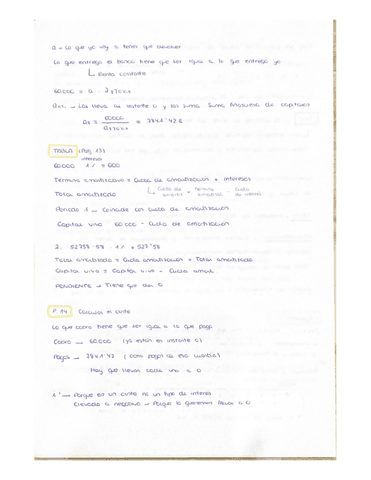 a - Lo que yo voy a tener que devolver
Lo que entrega el banco tiene que ser igual a lo que entrego yo.
Renta constante
60000 = a ·
lleva al instante 0 y los suma. Suma financiera de capitales
a = 60000 = 7841'42 €
TABLA (Pág 13)
interés
60000 · 1% = 600
Término amortizativo = Cuota de amortización + intereses
Cuota de = Término - Cuota
amortizativo de interés
Total amortizado
Periodo 1 - Coincide con cuota de amortización
Capital vivo 60.000 - Cuota de amortización
2. 52758'58 · 1% = 527'58
Total amortizado = Cuota amortización + Total amortizado
Capital vivo = Capital vivo - Cuota amort.
PENDIENTE - Tiene que dar 0
P. 14 Calcular el coste
Lo que cobro tiene que ser igual a lo que pago
Cobro - 60.000 (ya están en instante 0)
Pagos - 7841'42 (como pagos de esa cuantía)
Hay que llevar cada uno a 0
Porque es un coste no un tipo de interés
Elevado a negativo - Porque lo queremos llevar a 0